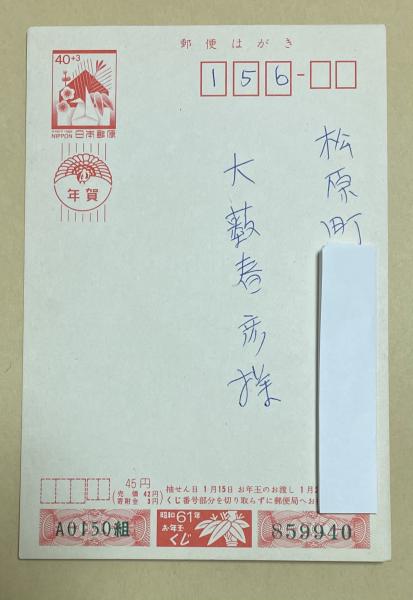 郵便はがき
40+3
NIPPON 日本郵便
年賀
156-
松原町
大藪春彦様
45円
(売価 42円
寄附金 3円)
抽せん日 1月15日 お年玉のお渡し 1月2
くじ番号部分を切り取らずに郵便局へお
A0150組
昭和61年
お年玉
くじ
859940